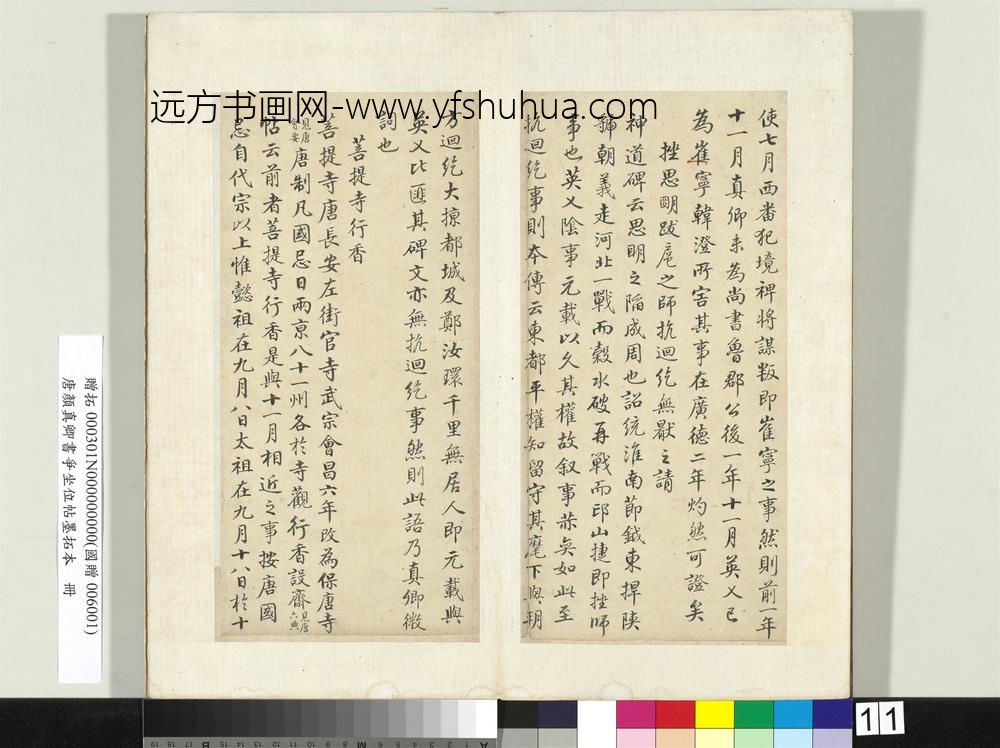 远方书画网-www.yfshuhua.com
使七月西番犯境裨將謀叛即崔寧之事然則前一年
十一月真卿未為尚書魯郡公後一年十一月英乂已
為崔寧韓澄所害其事在廣德二年灼然可證矣
挫思明跋扈之師抗迴紇無厭之請
神道碑云思明之陷成周也詔統淮南節鉞東捍陝
虢朝義走河北一戰而穀水破再戰而邙山捷即挫師
事也英乂陰事元載以久其權故叙事亦矣如此至
抗迴紇事則本傳云東都平權知留守其麾下與朔
方迴紇大掠都城及鄭汝環千里無居人即元載與
英乂比匪其碑文亦無抗迴紇事然則此語乃真卿微
詞也
菩提寺行香
菩提寺唐長安左街官寺武宗會昌六年改為保唐寺
見唐會要唐制凡國忌日兩京八十一州各於寺觀行香設齋見唐六典
帖云前者菩提寺行香是與十一月相近之事按唐國
忌自代宗以上惟懿祖在九月八日太祖在九月十八日於十
贈拓 000301N000000000(國贈 006001)
唐顏真卿書爭坐位帖墨拓本 冊
11